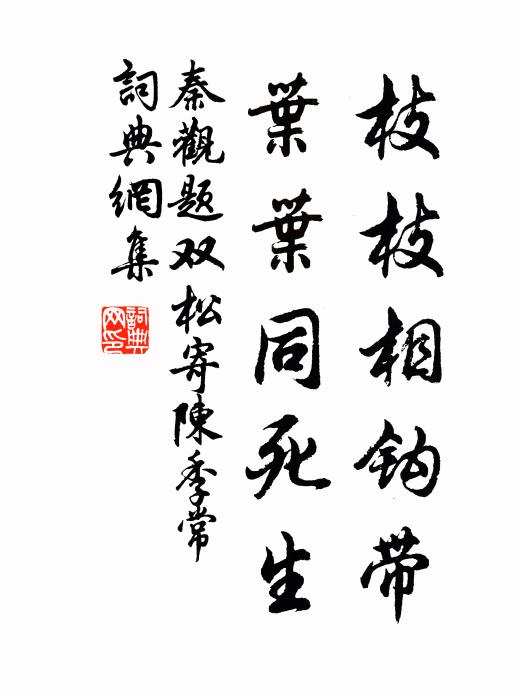 枝枝相鈎带
葉葉同死生
秦觀题双松寄陳季常
詞典網集
詞典网印